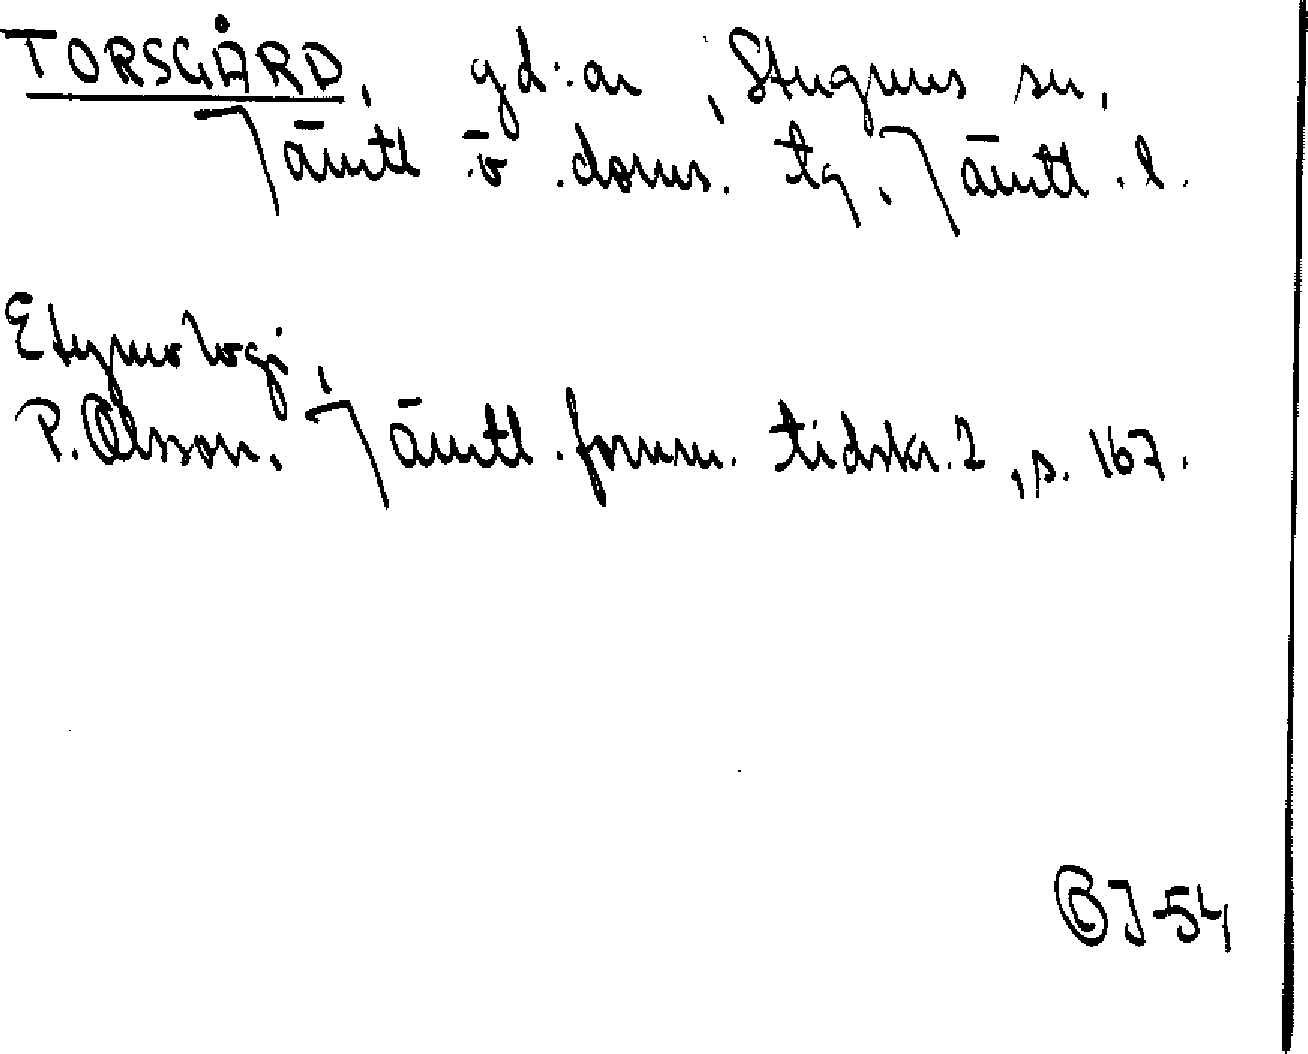 TORSGÅRD, gd:ar, Stuguns sn,
Jämtl ö. doms. tg, Jämtl. l.
Etymologi,
P. Olsson, Jämtl. fornm. tidskr. 2, s. 167.
OJ-54